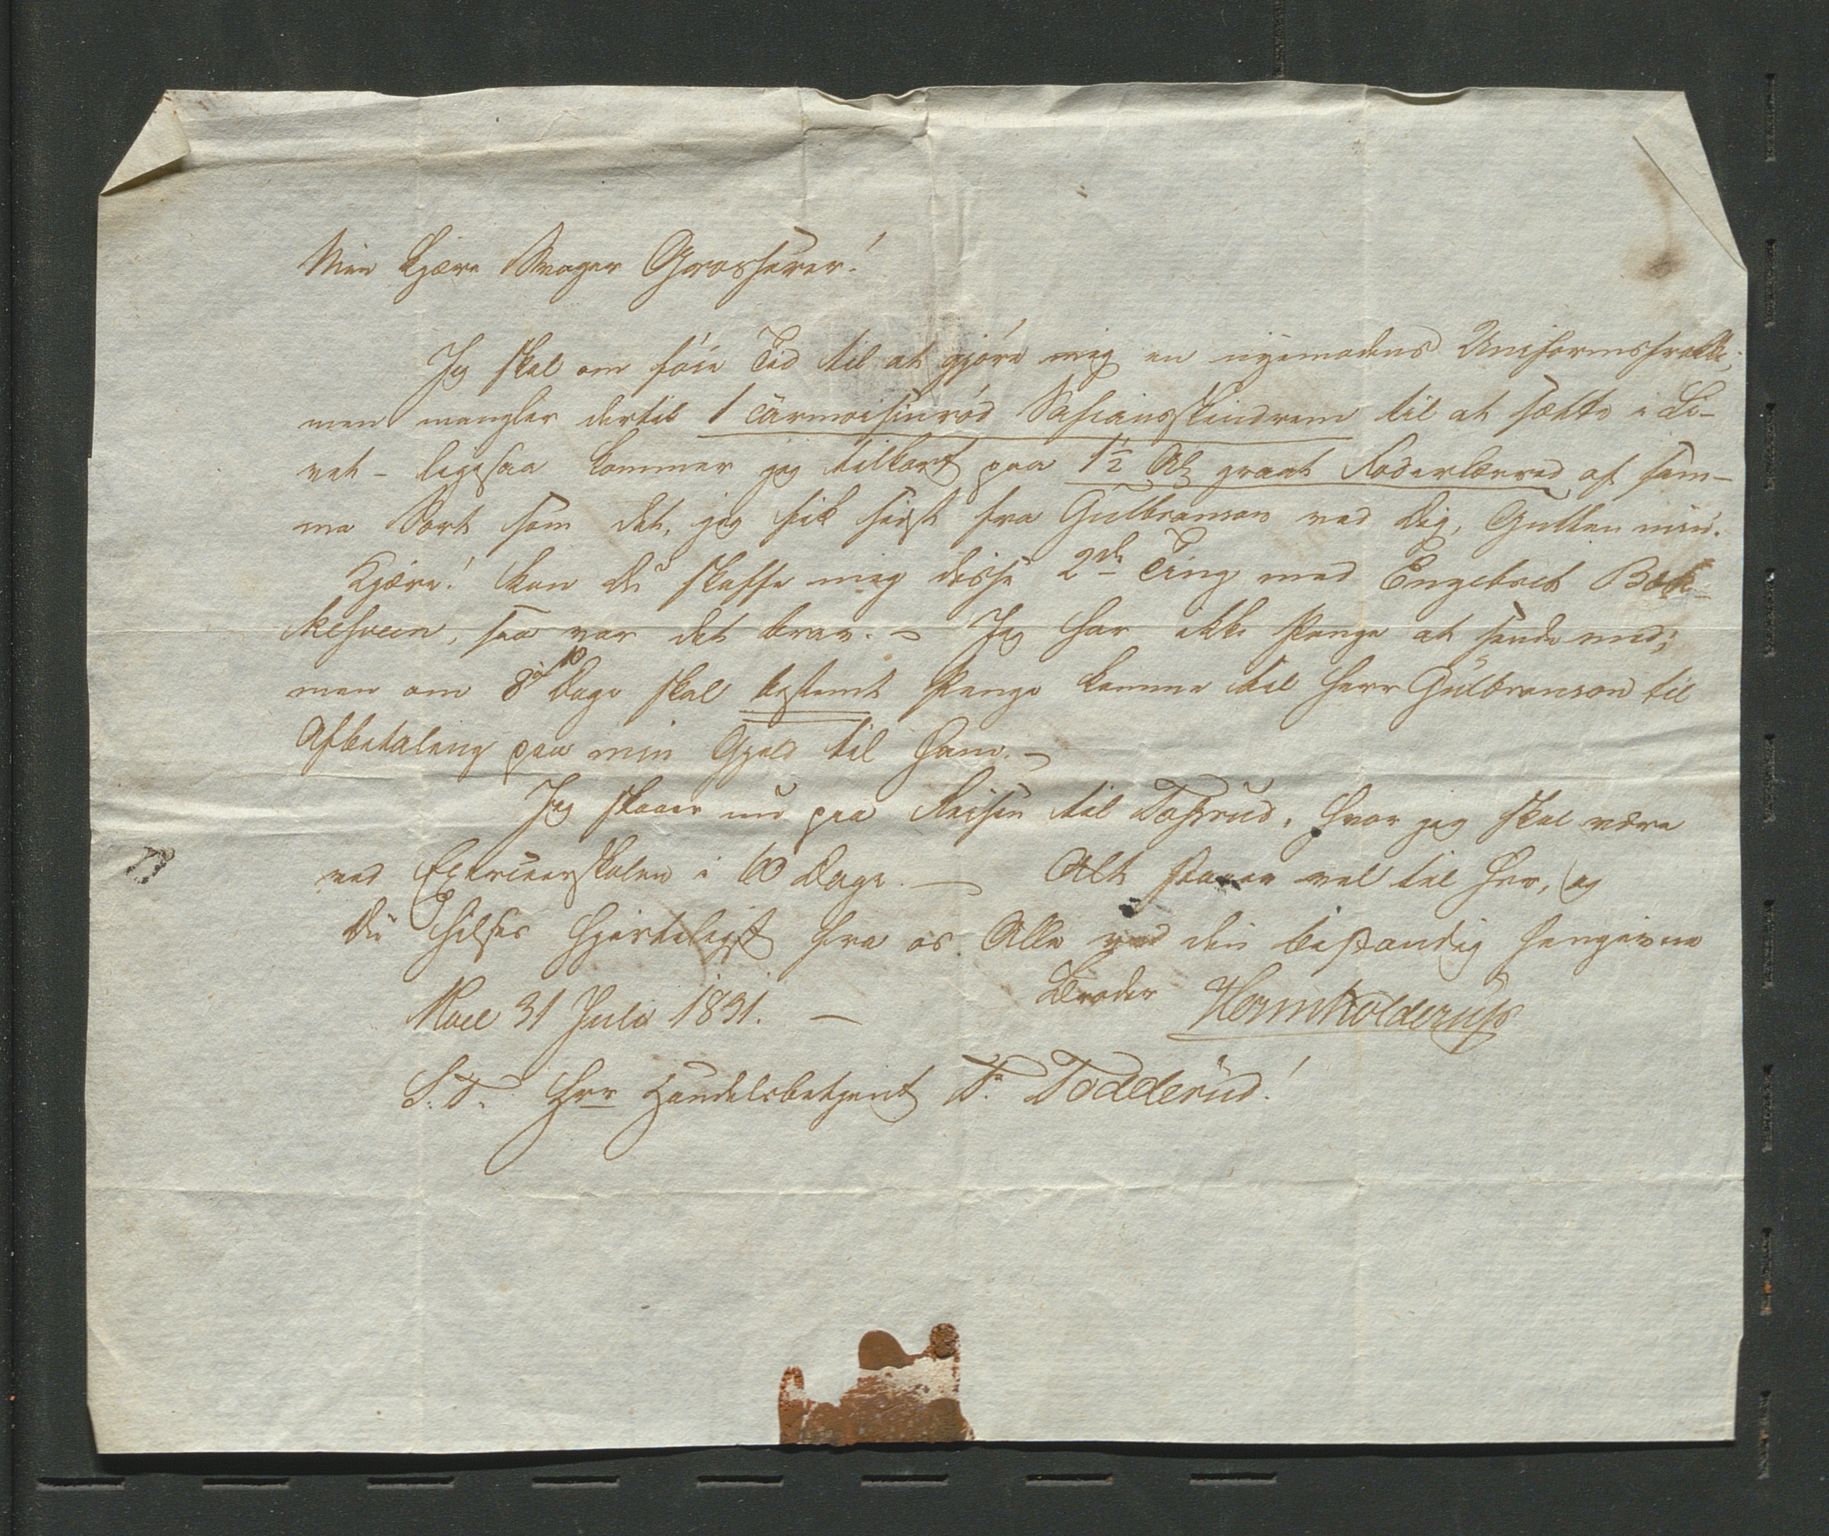 Min kjære Svoger Grosserer!
Jeg skal om føie Tid til at gjøre mig en nyemodens Uniformsfrakk;
men mangler dertil 1 carmoisinrød Safiansskindrem til at sætte i Li-
vet – ligesaa kommer jeg tilkort paa 1½ Al graat Foderlærred af sam-
me Sort som det, jeg fik sidst fra Gulbranson ved Dig, Gutten min.
Kjære! kan Du skaffe mig disse 2de Ting med Engebret Bæk-
kesveen, saa var det brav. – Jeg har ikke Penge at sende med;
men om 8 a 10 Dage skal bestemt Penge komme til Herr Gulbranson til
Afbetaling paa min Gjeld til ham. –
Jeg staaer nu paa Reisen til Toftsrud, hvor jeg skal være
ved Exerceerskolen i 10 Dage. – Alt staaer vel til her, og
Du hilses hjerteligst fra os Alle ved din bestandig hengivne
Broder
Moe 31 Juli 1831. –
S. T. Hrr Handelsbetjent T. Todderud!